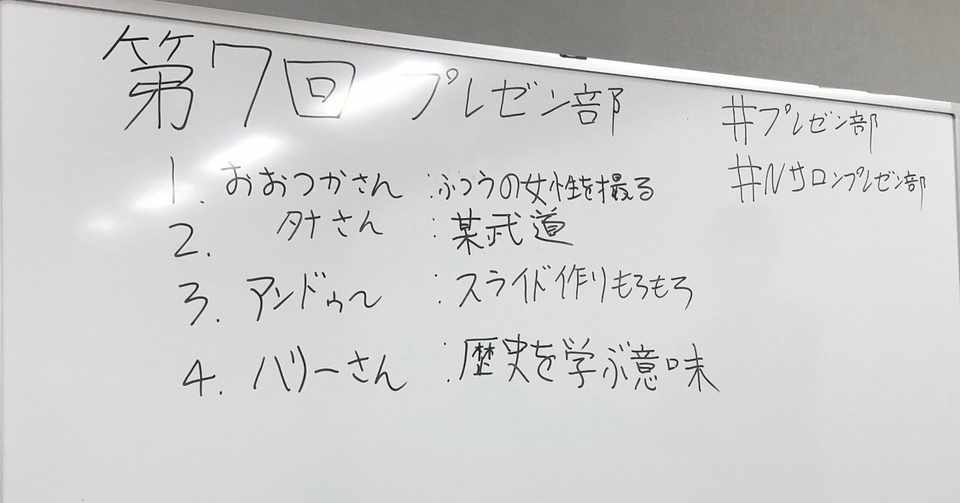 第7回 プレゼン部
#プレゼン部
#Nサロンプレゼン部
1. おおつかさん :ふつうの女性を撮る
2. タナさん :某武道
3. アンドゥ〜 :スライド作りもろもろ
4. バリーさん :歴史を学ぶ意味